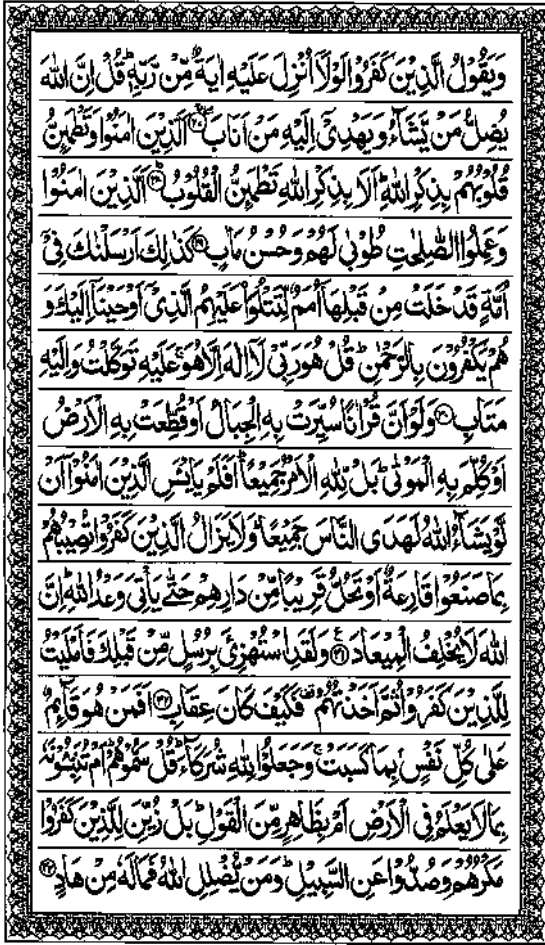 وَيَقُوْلُ الَّذِيْنَ كَفَرُوْا لَوْلَاۤ اُنْزِلَ عَلَيْهِ اٰيَةٌ مِّنْ رَّبِّهٖؕ قُلْ اِنَّ اللّٰهَ
يُضِلُّ مَنْ يَّشَآءُ وَيَهْدِيْۤ اِلَيْهِ مَنْ اَنَابَۖ۝۲۷ اَلَّذِيْنَ اٰمَنُوْا وَتَطْمَىِٕنُّ
قُلُوْبُهُمْ بِذِكْرِ اللّٰهِؕ اَلَا بِذِكْرِ اللّٰهِ تَطْمَىِٕنُّ الْقُلُوْبُؕ۝۲۸ اَلَّذِيْنَ اٰمَنُوْا
وَعَمِلُوا الصّٰلِحٰتِ طُوْبٰى لَهُمْ وَحُسْنُ مَاٰبٍ۝۲۹ كَذٰلِكَ اَرْسَلْنٰكَ فِيْۤ
اُمَّةٍ قَدْ خَلَتْ مِنْ قَبْلِهَاۤ اُمَمٌ لِّتَتْلُوَا۟ عَلَيْهِمُ الَّذِيْۤ اَوْحَيْنَاۤ اِلَيْكَ وَ
هُمْ يَكْفُرُوْنَ بِالرَّحْمٰنِؕ قُلْ هُوَ رَبِّيْ لَاۤ اِلٰهَ اِلَّا هُوَۚ عَلَيْهِ تَوَكَّلْتُ وَاِلَيْهِ
مَتَابِ۝۳۰ وَلَوْ اَنَّ قُرْاٰنًا سُيِّرَتْ بِهِ الْجِبَالُ اَوْ قُطِّعَتْ بِهِ الْاَرْضُ
اَوْ كُلِّمَ بِهِ الْمَوْتٰىؕ بَلْ لِّلّٰهِ الْاَمْرُ جَمِيْعًاؕ اَفَلَمْ يَايْـَٔسِ الَّذِيْنَ اٰمَنُوْۤا اَنْ
لَّوْ يَشَآءُ اللّٰهُ لَهَدَى النَّاسَ جَمِيْعًاؕ وَلَا يَزَالُ الَّذِيْنَ كَفَرُوْا تُصِيْبُهُمْ
بِمَا صَنَعُوْا قَارِعَةٌ اَوْ تَحُلُّ قَرِيْبًا مِّنْ دَارِهِمْ حَتّٰى يَاْتِيَ وَعْدُ اللّٰهِؕ اِنَّ
اللّٰهَ لَا يُخْلِفُ الْمِيْعَادَ۠۝۳۱ وَلَقَدِ اسْتُهْزِئَ بِرُسُلٍ مِّنْ قَبْلِكَ فَاَمْلَيْتُ
لِلَّذِيْنَ كَفَرُوْا ثُمَّ اَخَذْتُهُمْ۫ فَكَيْفَ كَانَ عِقَابِ۝۳۲ اَفَمَنْ هُوَ قَآىِٕمٌ
عَلٰى كُلِّ نَفْسٍۭ بِمَا كَسَبَتْۚ وَجَعَلُوْا لِلّٰهِ شُرَكَآءَؕ قُلْ سَمُّوْهُمْؕ اَمْ تُنَبِّـُٔوْنَهٗ
بِمَا لَا يَعْلَمُ فِي الْاَرْضِ اَمْ بِظَاهِرٍ مِّنَ الْقَوْلِؕ بَلْ زُيِّنَ لِلَّذِيْنَ كَفَرُوْا
مَكْرُهُمْ وَصُدُّوْا عَنِ السَّبِيْلِؕ وَمَنْ يُّضْلِلِ اللّٰهُ فَمَا لَهٗ مِنْ هَادٍ۝۳۳